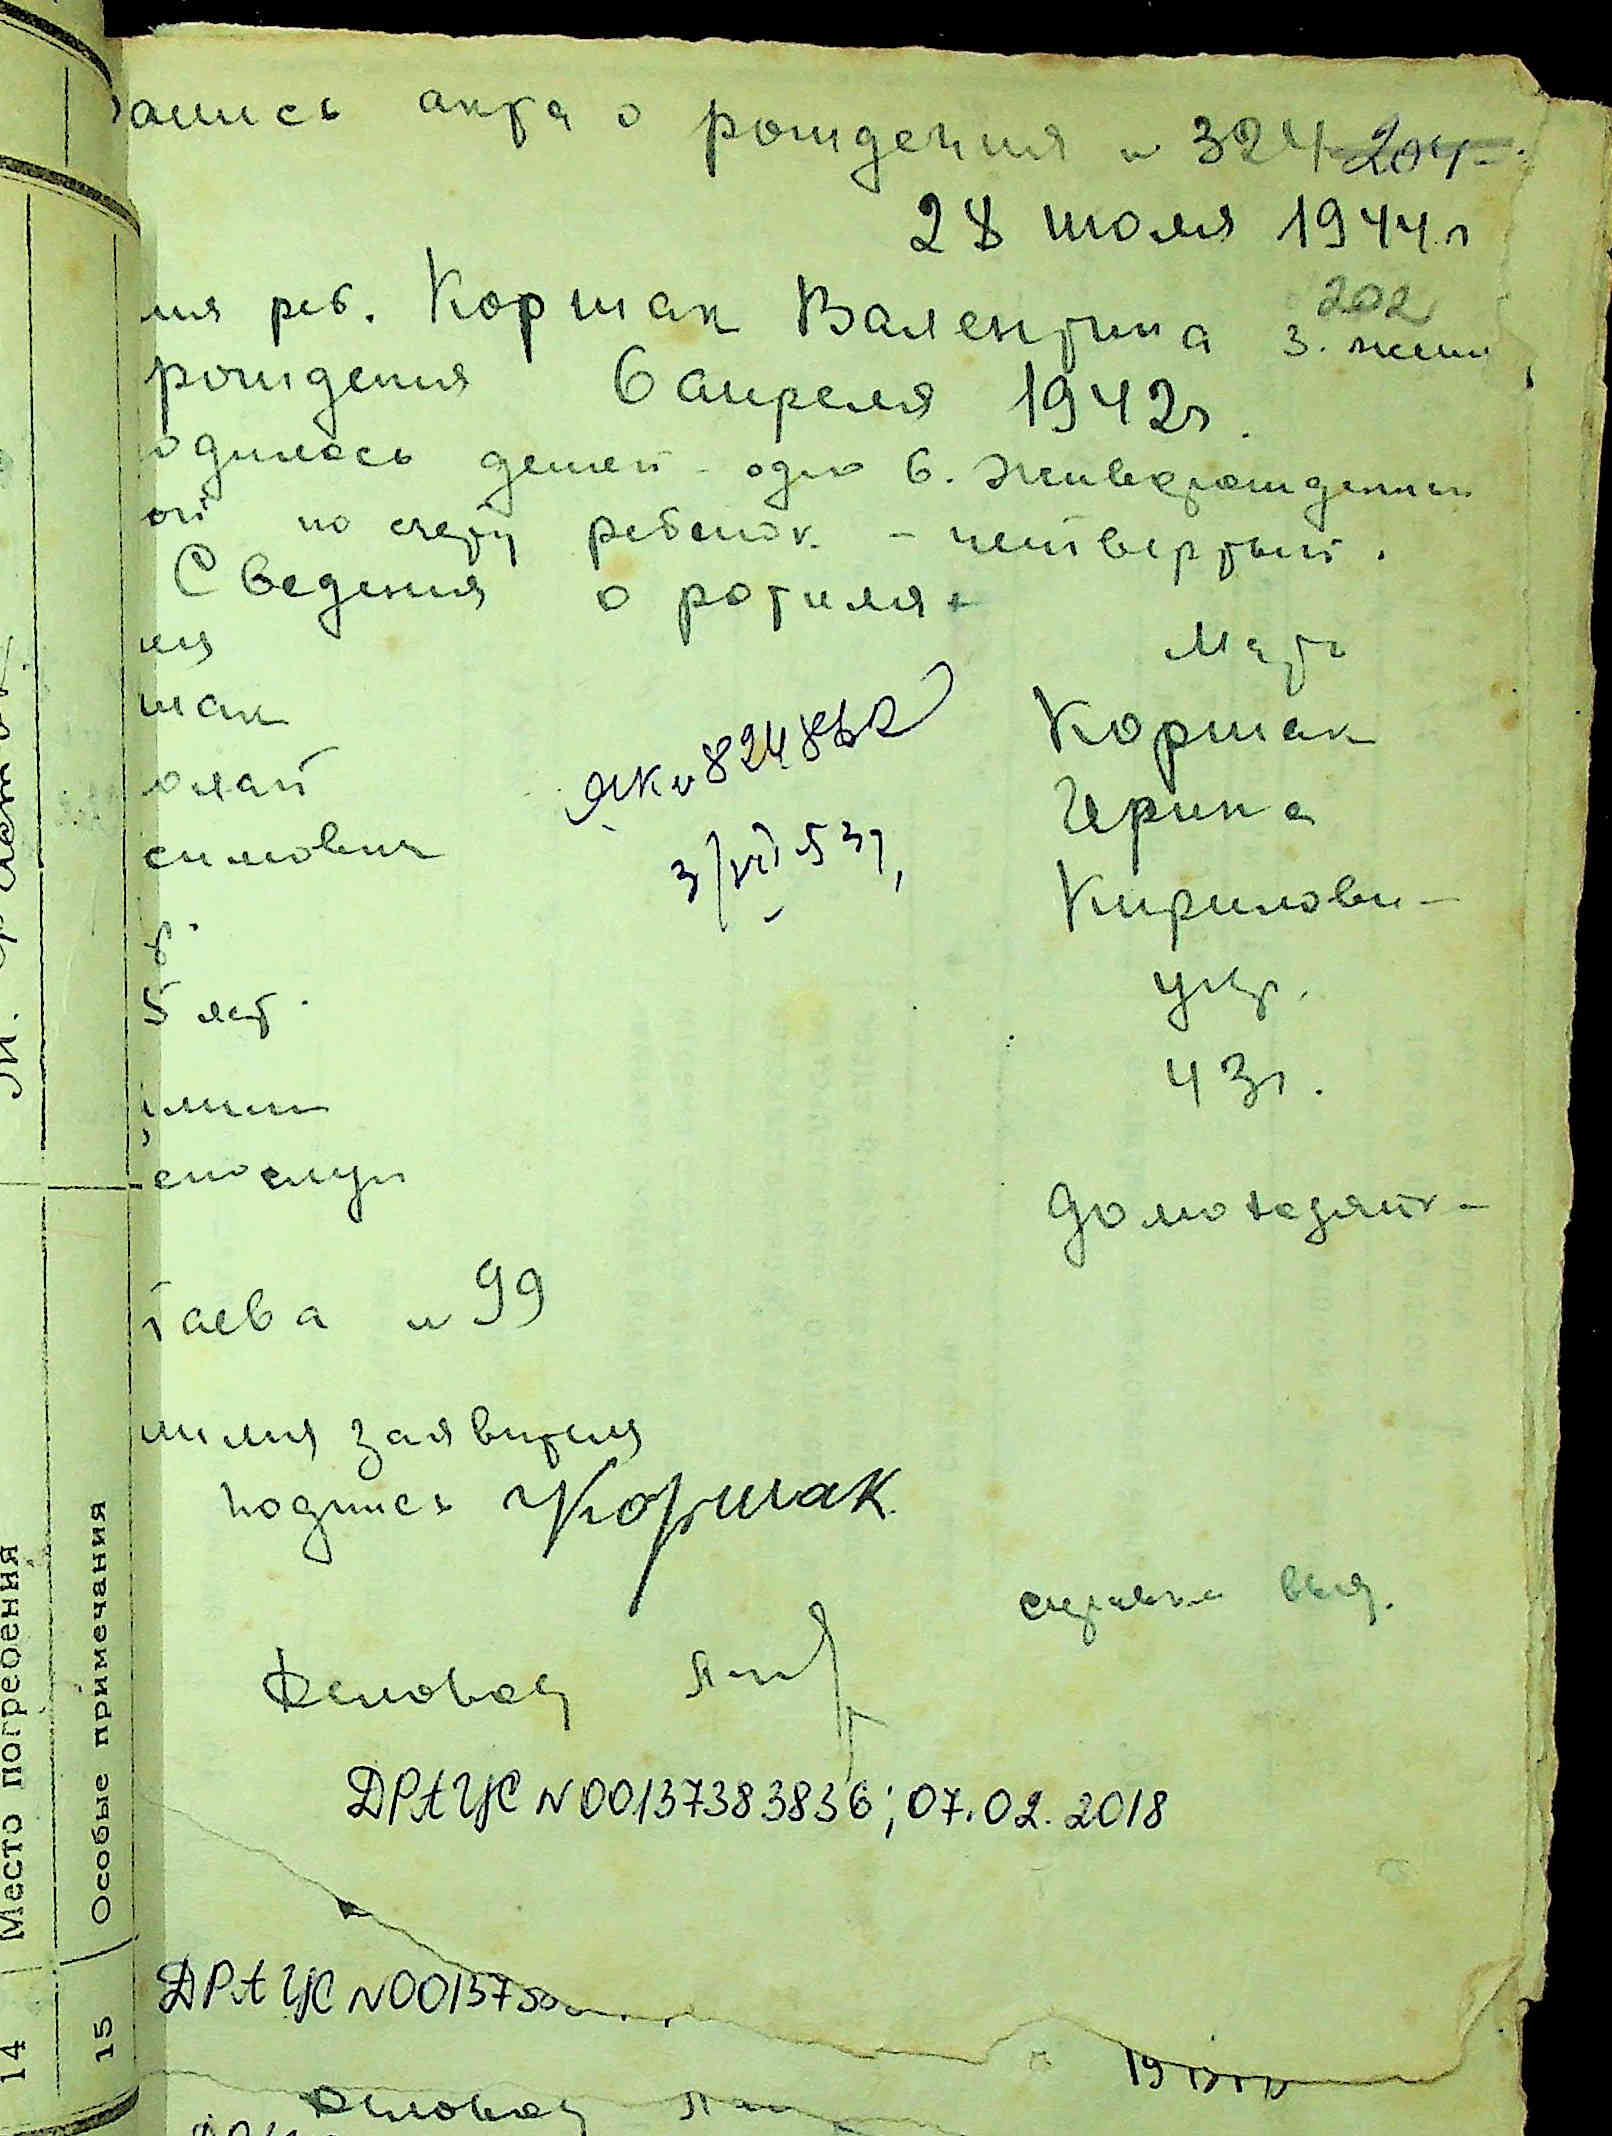 апись акта о рождения № 324 204
28 июля 1944 г
202
мя реб. Коршак Валентина 3. жен
рождения 6 апреля 1942 г.
одилось детей - одно 6. Живорожденны
ой по счету ребенок - четвертый.
Сведения о родителях
Мать
шак Коршак
олай Ирина
симович Кирилови-
укр.
5 лет 43 г.
Домохозяйк-
таева № 99
милия заявителя
подпись Коршак
справка выд.
ДРАЦС N00137383836; 07.02.2018
ДРАЦС N00137
ЯК № 824862
3/VII 53 г.
14 Место погребения
15 Особые примечания